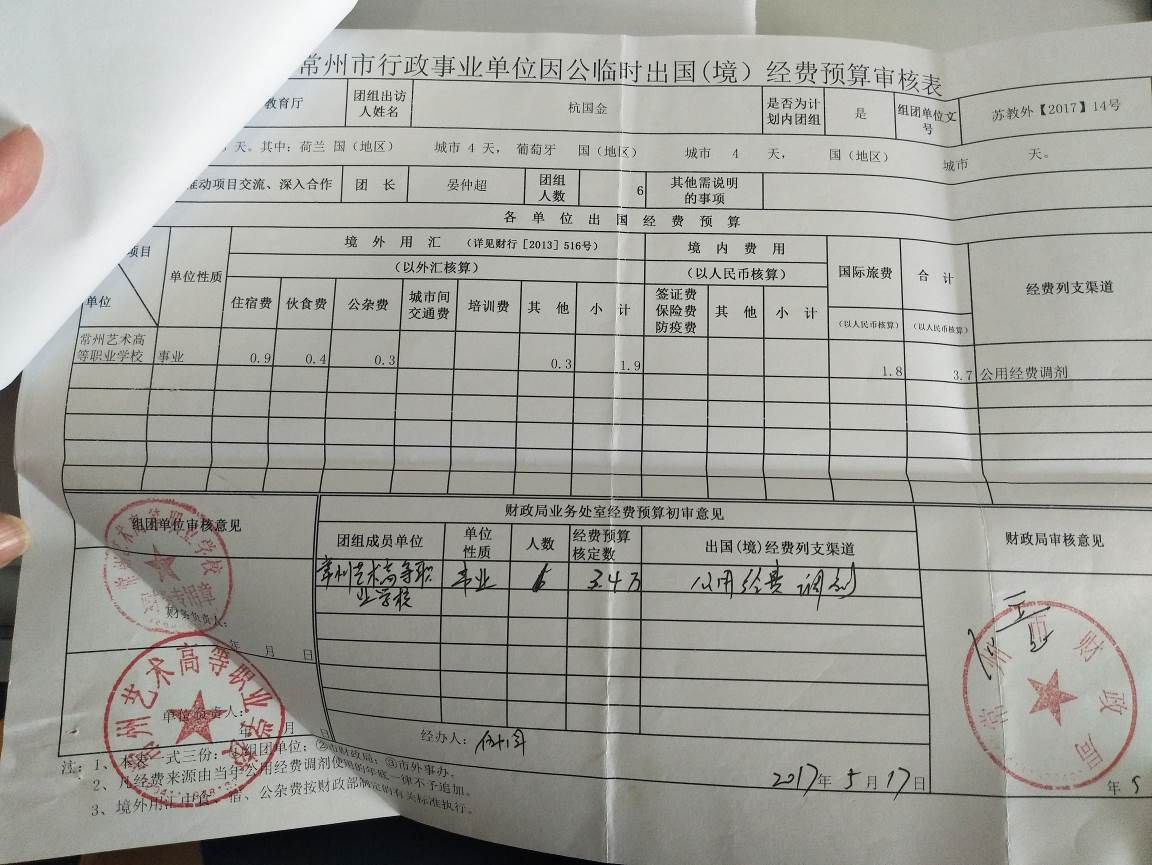 常州市行政事业单位因公临时出国(境)经费预算审核表
教育厅 团组出访人姓名 杭国金 是否为计划内团组 是 组团单位文号 苏教外【2017】14号
天。其中:荷兰 国(地区) 城市 4 天, 葡萄牙 国(地区) 城市 4 天, 国(地区) 城市 天。
推动项目交流、深入合作 团 长 晏仲超 团组人数 6 其他需说明的事项
各 单 位 出 国 经 费 预 算
项目 单位 单位性质 境 外 用 汇 (详见财行[2013]516号) 境 内 费 用 国际旅费 合 计 经费列支渠道
(以外汇核算) (以人民币核算)
住宿费 伙食费 公杂费 城市间交通费 培训费 其 他 小 计 签证费保险费防疫费 其 他 小 计 (以人民币核算) (以人民币核算)
常州艺术高等职业学校 事业 0.9 0.4 0.3 0.3 1.9 1.8 3.7 公用经费调剂
组团单位审核意见 财政局业务处室经费预算初审意见 财政局审核意见
团组成员单位 单位性质 人数 经费预算核定数 出国(境)经费列支渠道
常州艺术高等职业学校 事业 3.4万 公用经费调剂
财务负责人:
年 月 日
单位负责人:
年 月 日
经办人:
2017年5月17日
年 5
常州艺术高等职业学校
常州市财政局
注: 1、本表一式三份:①组团单位;②市财政局;③市外事办。
2、凡经费来源由当年公用经费调剂使用的年底一律不予追加。
3、境外用汇中食、宿、公杂费按财政部制定的有关标准执行。